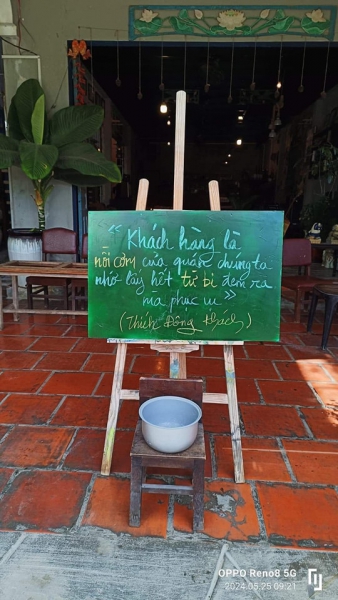 “ Khách hàng là
nồi cơm của quán chúng ta
nhớ lấy hết từ bi đem ra
mà phục vụ »
(Thích Đông Khách)
OPPO Reno8 5G
2024.05.25 09:21